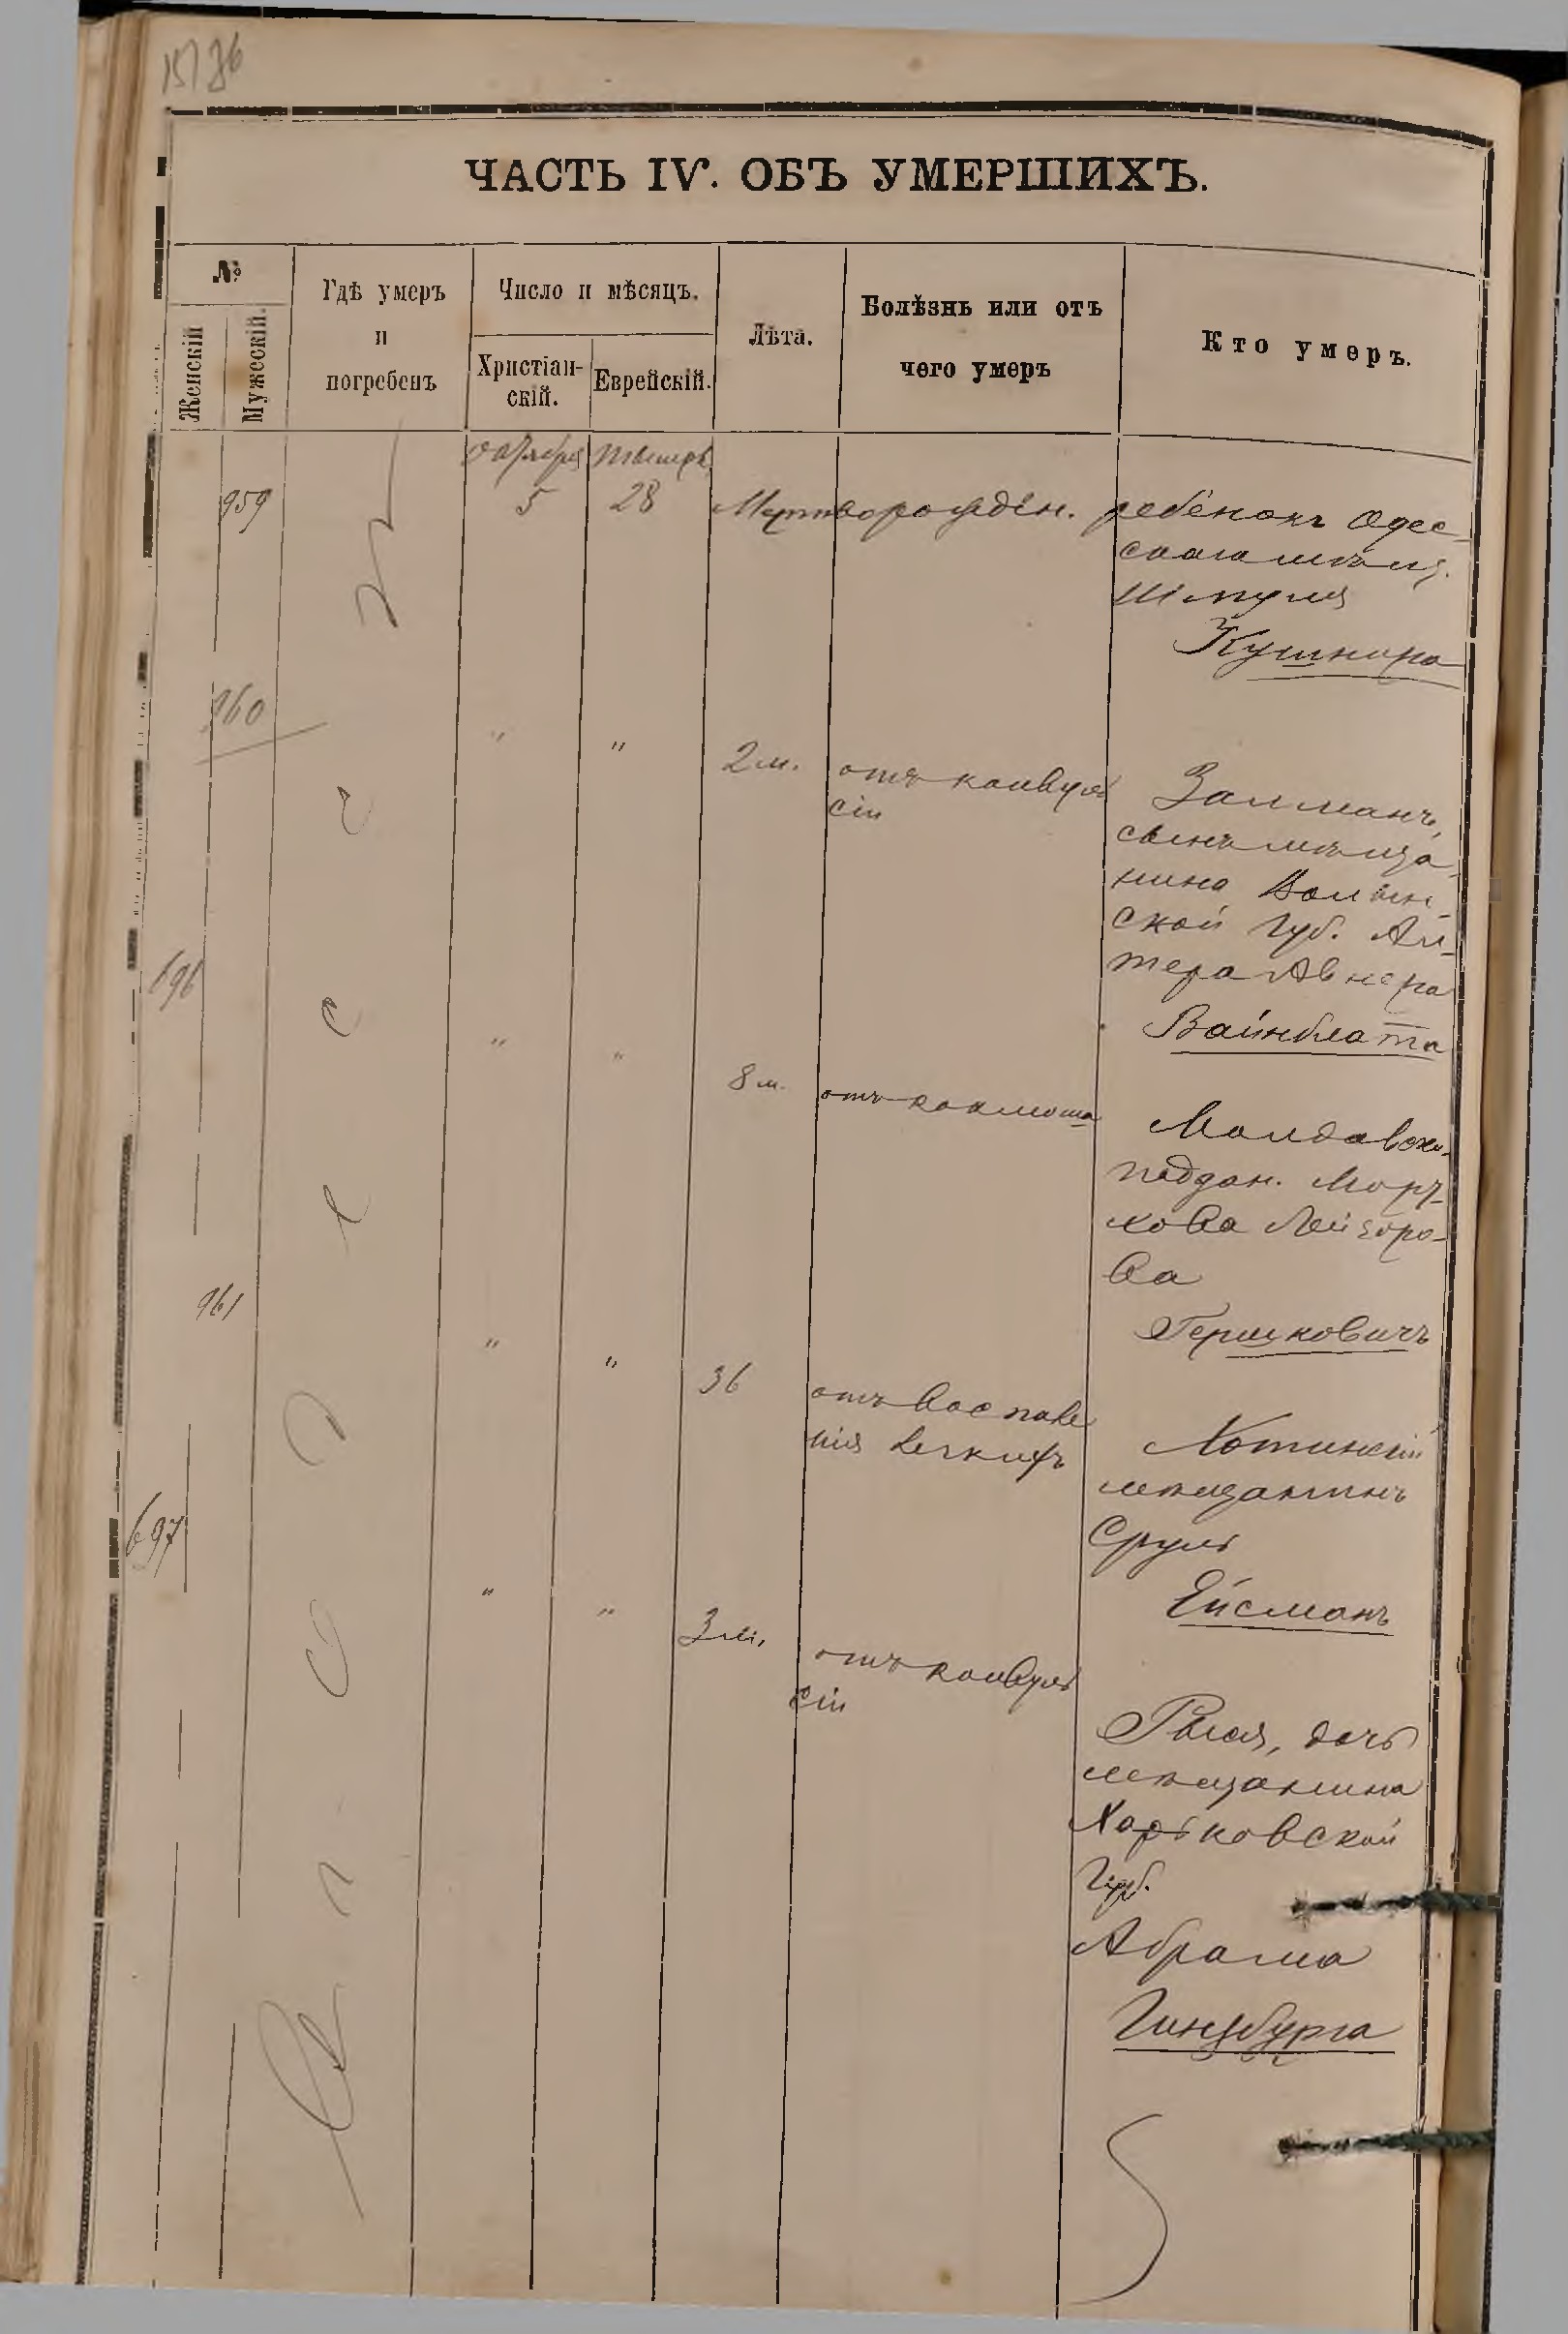 ЧАСТЬ IV. ОБЪ УМЕРШИХЪ.
№
Женскій
Мужескій.
Гдѣ умеръ
и
погребенъ
Число и мѣсяцъ.
Христіан-
скій.
Еврейскій.
Лѣта.
Болѣзнь или отъ
чего умеръ
Кто умеръ.
октября
959
5
28
Мертворожден. ребенокъ Одес-
скаго мѣщ.
Шмуля
Кушнира
960
"
"
2 м.
отъ конвуль
сіи
Залманъ,
сынъ мѣща-
нина Волын-
ской губ. Ай-
тера Авнера
Вайнблата
696
"
"
8 м.
отъ коклюша
Молдавск.
поддан. Мор-
кова Лейзоро-
ва
Гершковичъ
961
"
"
36
отъ воспале
нія легкихъ
Хотинскій
мѣщанинъ
Сруль
Ейсманъ
697
"
"
3 м.
отъ конвуль
сіи
дочь
мѣщанина
Харьковской
губ.
Абрама
Гинцбурга